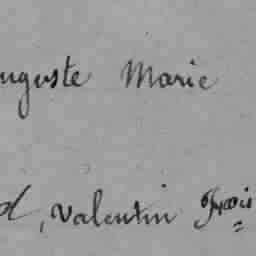 uguste Marie
d, Valentin Fçois